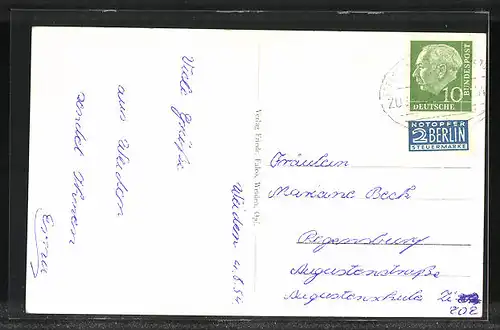 Viele Grüße
aus Weiden
sendet Ihnen
Erna
Weiden 4.8.54
Verlag Friedr. Weiden, Opf.
10
DEUTSCHE
BUNDESPOST
ZU
NOTOPFER
2 BERLIN
STEUERMARKE
Fräulein
Mariane Bech
Regensburg
Augustenstraße
Augustenschule Zi
202